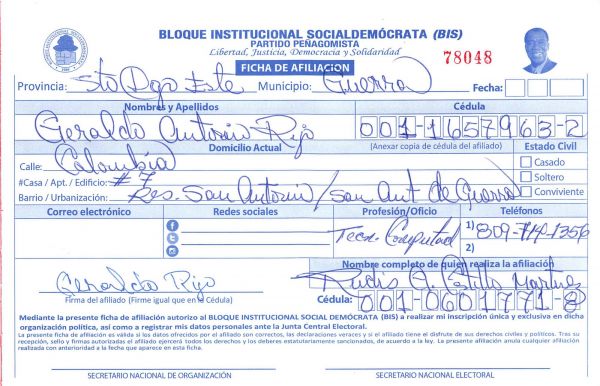 BLOQUE INSTITUCIONAL SOCIALDEMÓCRATA (BIS)
PARTIDO PEÑAGOMISTA
Libertad, Justicia, Democracia y Solidaridad
78048
FICHA DE AFILIACION
Provincia: Sto Dgo Este Municipio: Guerra Fecha:
Nombres y Apellidos Cédula
Geraldo Antonio Rijo 001-1657963-2
Domicilio Actual (Anexar copia de cédula del afiliado) Estado Civil
Calle: Colombia Casado
#Casa / Apt. / Edificio: # 7 Soltero
Barrio / Urbanización: Res. San Antonio / San Ant. de Guerra Conviviente
Correo electrónico Redes sociales Profesión/Oficio Teléfonos
Tecn. Computad 1) 809-714-1356
2)
Nombre completo de quien realiza la afiliación
Geraldo Rijo Rudis A. Castillo Martinez
Firma del afiliado (Firme igual que en la Cédula) Cédula: 001-0601771-8
Mediante la presente ficha de afiliación autorizo al BLOQUE INSTITUCIONAL SOCIAL DEMÓCRATA (BIS) a realizar mi inscripción única y exclusiva en dicha
organización política, así como a registrar mis datos personales ante la Junta Central Electoral.
La presente ficha de afiliación es válida si los datos ofrecidos por el afiliado son correctos, las declaraciones veraces y si el afiliado tiene el disfrute de sus derechos civiles y políticos. Tras su
recepción, sello y firmas autorizadas el afiliado ejercerá todos los derechos y los deberes estatutariamente sancionados, de acuerdo a la ley. La presente afiliación anula cualquier afiliación
realizada con anterioridad a la fecha que aparece en esta ficha.
SECRETARIO NACIONAL DE ORGANIZACIÓN SECRETARIO NACIONAL ELECTORAL